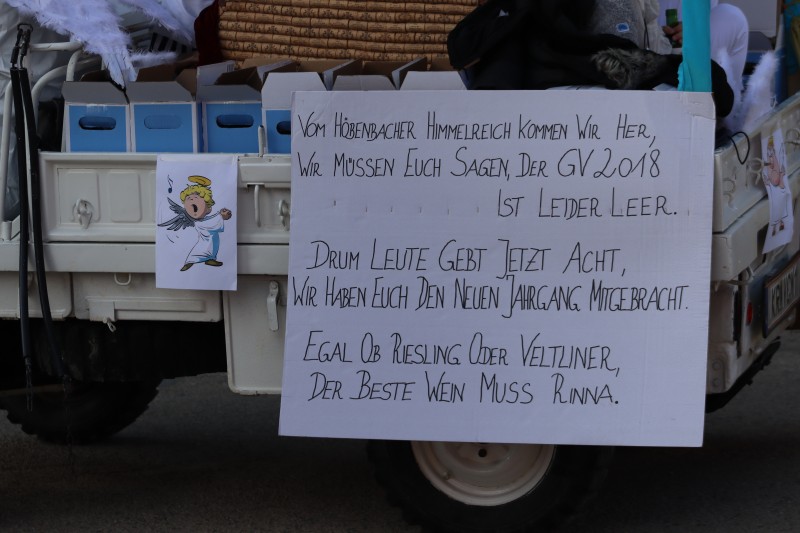 Vom Höbenbacher Himmelreich kommen wir her,
Wir müssen euch sagen, der GV 2018
ist leider leer.
Drum Leute gebt jetzt acht,
Wir haben euch den neuen Jahrgang mitgebracht.
Egal ob Riesling oder Veltliner,
Der beste Wein muss rinna.